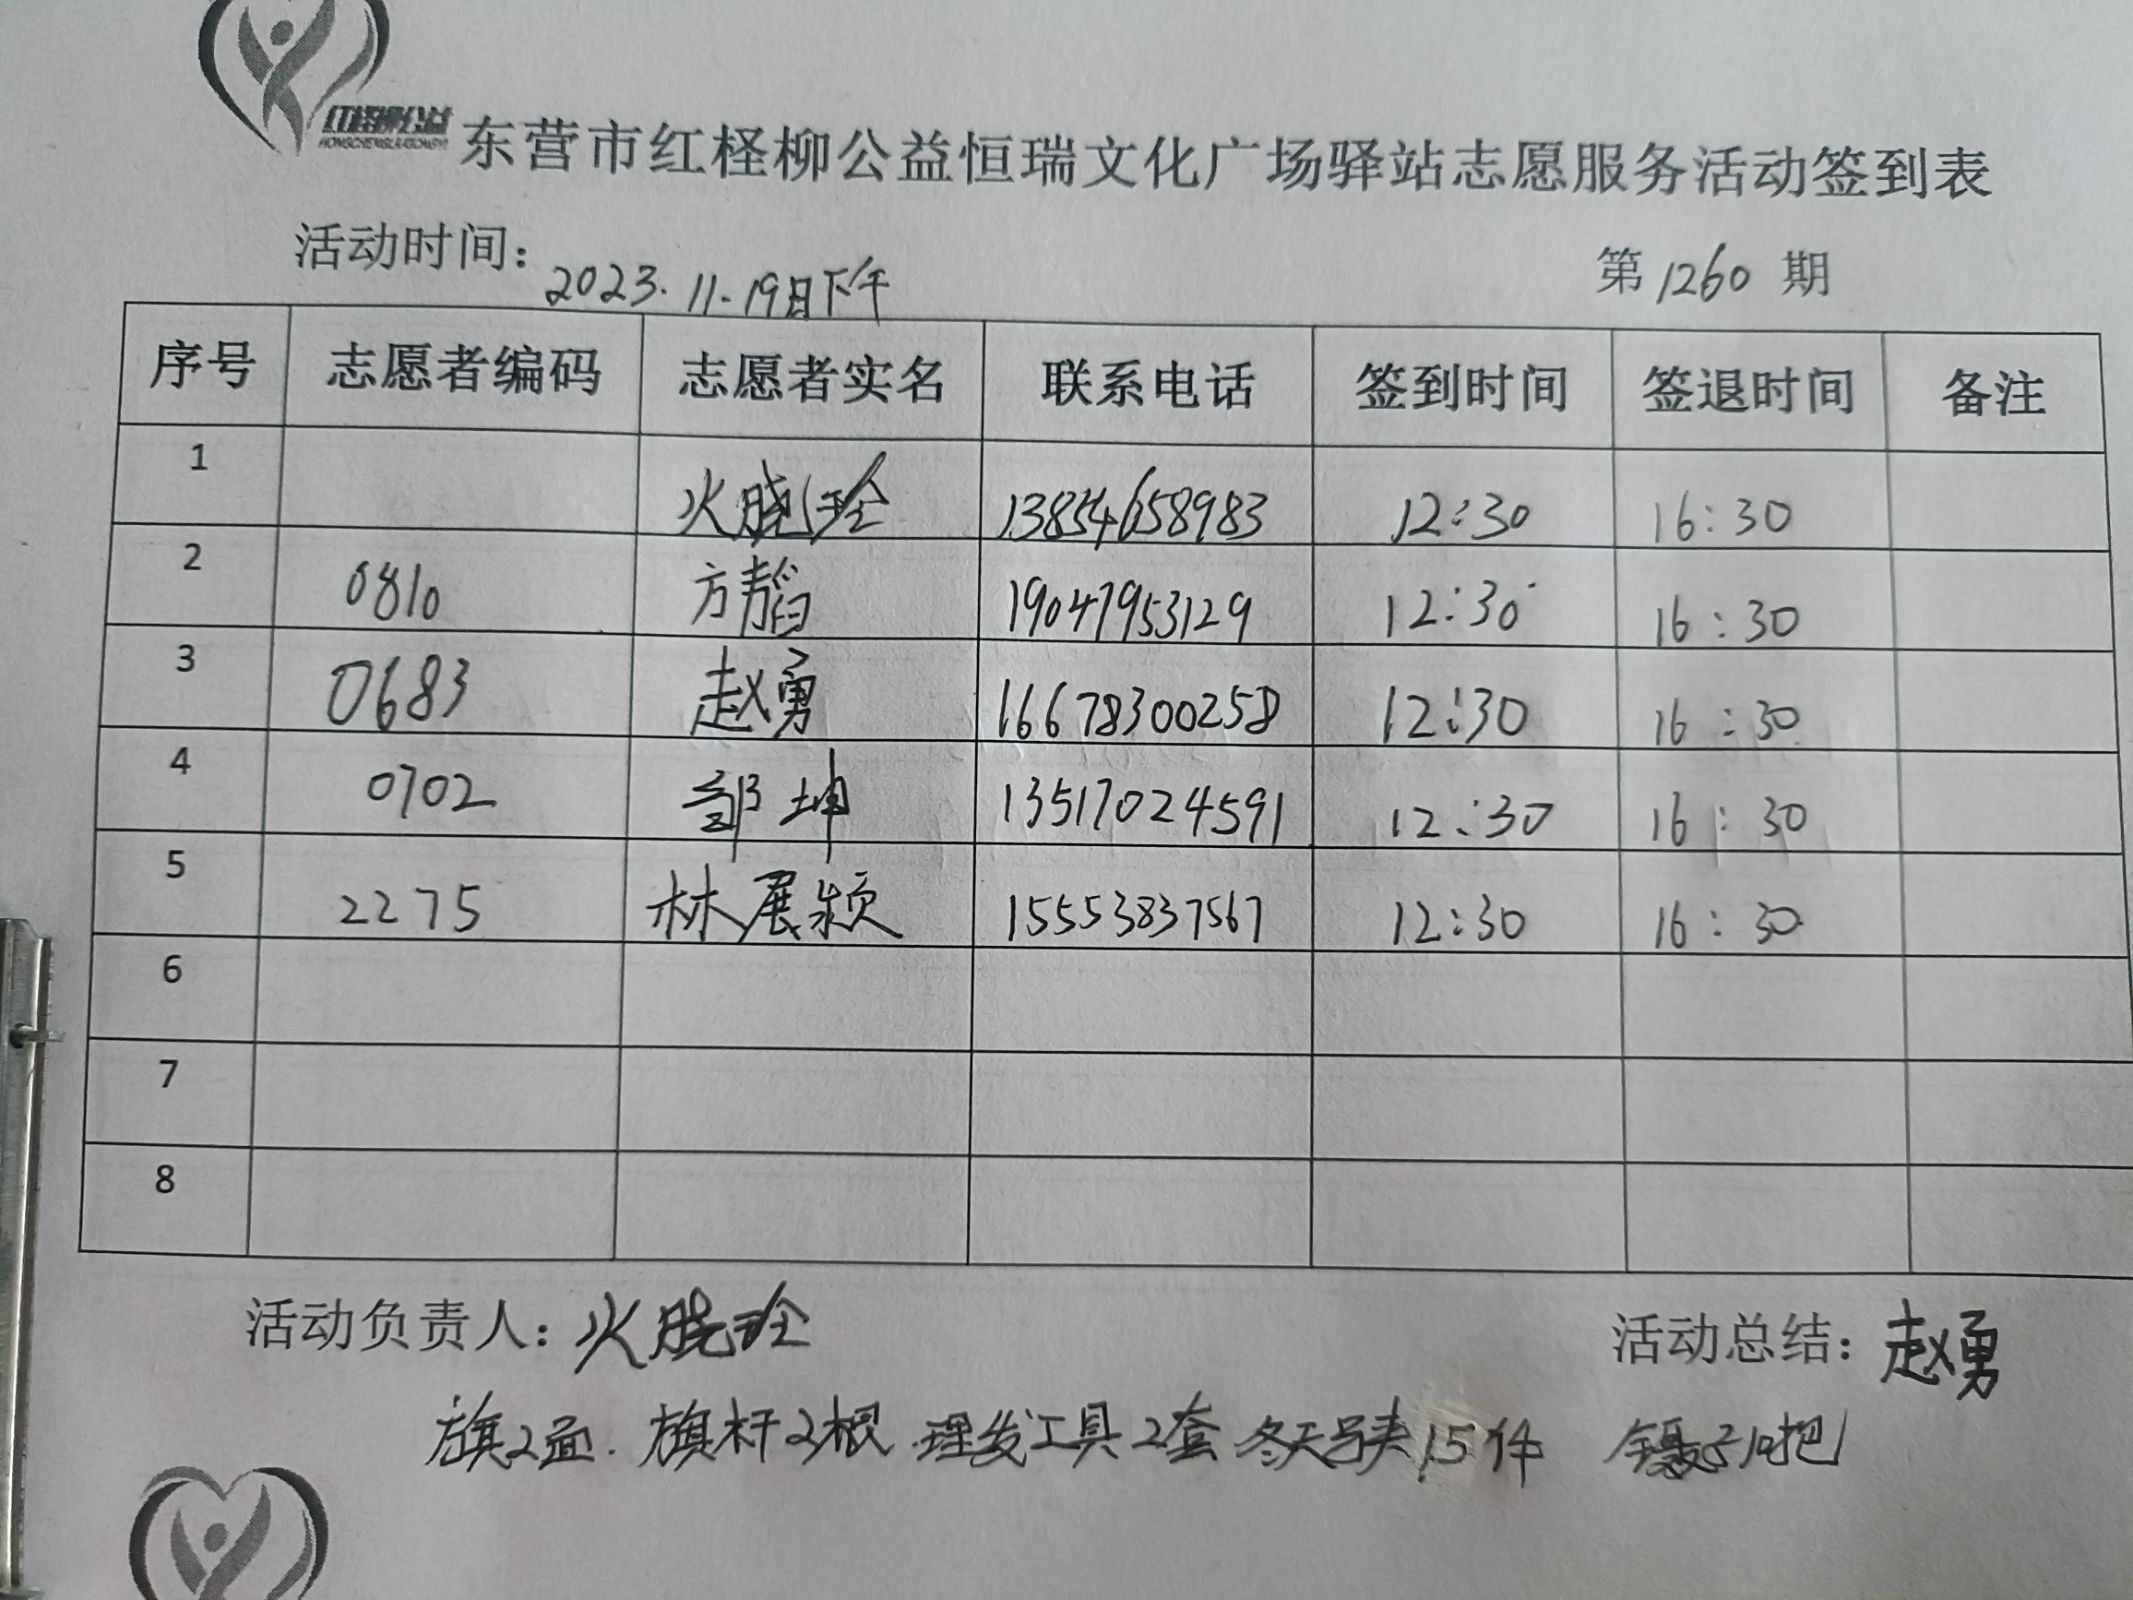 红柽柳公益
东营市红柽柳公益恒瑞文化广场驿站志愿服务活动签到表
活动时间：2023.11.19日下午 第1260期
序号 志愿者编码 志愿者实名 联系电话 签到时间 签退时间 备注
1 火晓玲 13854658983 12:30 16:30
2 0810 方韬 19047953129 12:30 16:30
3 0683 赵勇 16678300258 12:30 16:30
4 0702 邹坤 13517024591 12:30 16:30
5 2275 林展颍 15553837567 12:30 16:30
6
7
8
活动负责人：火晓玲 活动总结：赵勇
旗2面.旗杆2根.理发工具2套 冬天马夹15件 镊子10把